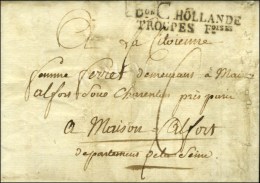 Don C HOLLANDE
TROUPES Foises
A La Citoienne
femme Ferret demeurant à Mai
alfort sous Charenton près paris
a Maison Alfort
departement de la Seine